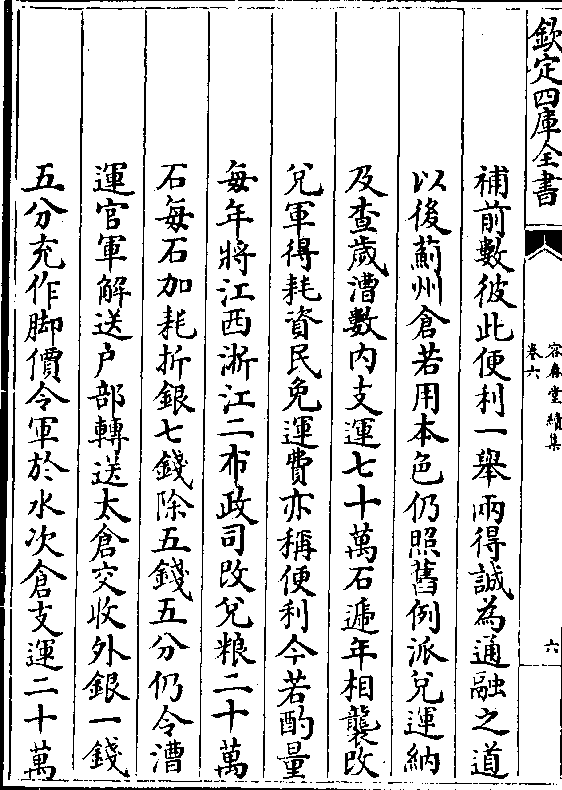 欽定四庫全書
容春堂續集
卷六
六
補前數彼此便利一舉兩得誠為通融之道
以後薊州倉若用本色仍照舊例派兌運納
及查歲漕數內支運七十萬石遞年相襲改
兌軍得耗資民免運費亦稱便利今若酌量
每年將江西浙江二布政司改兌粮二十萬
石每石加耗折銀七錢除五錢五分仍令漕
運官軍解送户部轉送太倉交收外銀一錢
五分充作脚價令軍於水次倉支運二十萬